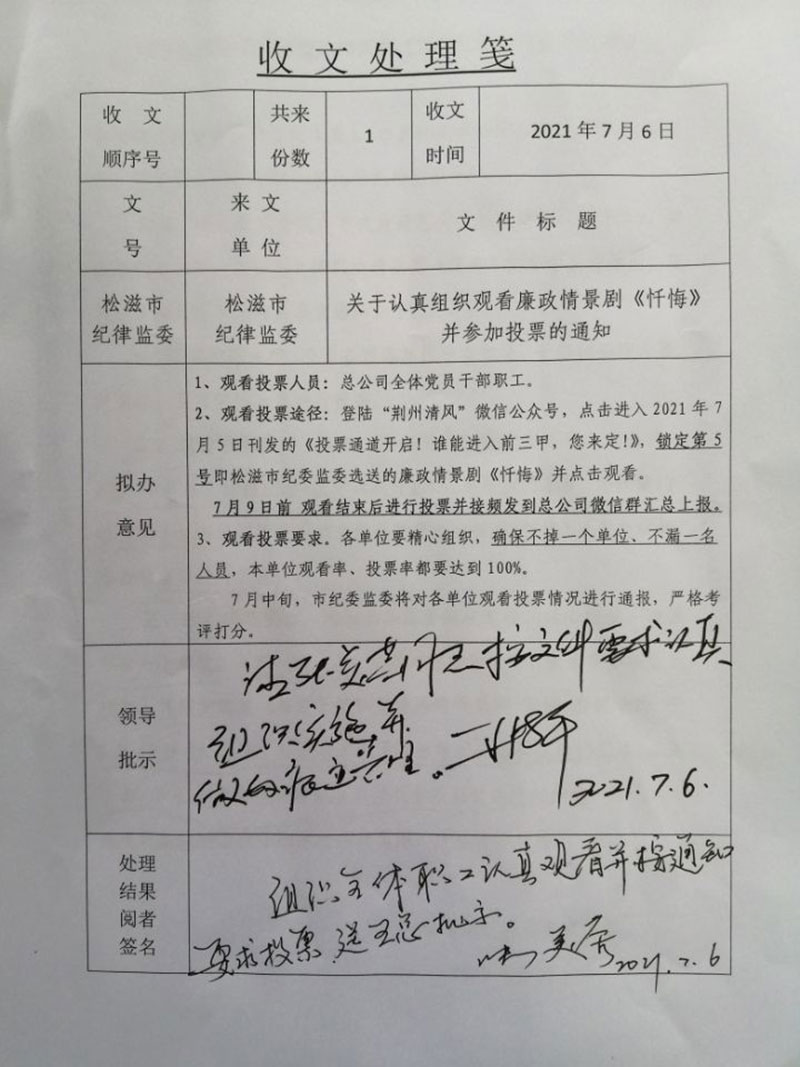 收文处理笺
收 文 顺序号
共来 份数
1
收文 时间
2021年7月6日
文 号
来 文 单 位
文 件 标 题
松滋市 纪律监委
松滋市 纪律监委
关于认真组织观看廉政情景剧《忏悔》
并参加投票的通知
拟办 意见
1、观看投票人员：总公司全体党员干部职工。
2、观看投票途径：登陆“荆州清风”微信公众号，点击进入 2021 年 7
月 5 日刊发的《投票通道开启！谁能进入前三甲，您来定！》，锁定第 5
号即松滋市纪委监委选送的廉政情景剧《忏悔》并点击观看。
7 月 9 日前 观看结束后进行投票并接频发到总公司微信群汇总上报。
3、观看投票要求。各单位要精心组织，确保不掉一个单位、不漏一名
人员，本单位观看率、投票率都要达到 100%。
7 月中旬，市纪委监委将对各单位观看投票情况进行通报，严格考
评打分。
领导 批示
同志按文件要求认真
组织实施并
做好。
2021.7.6.
处理 结果 阅者 签名
组织全体职工认真观看并按通知
要求投票 送王总批示。
2021.7.6